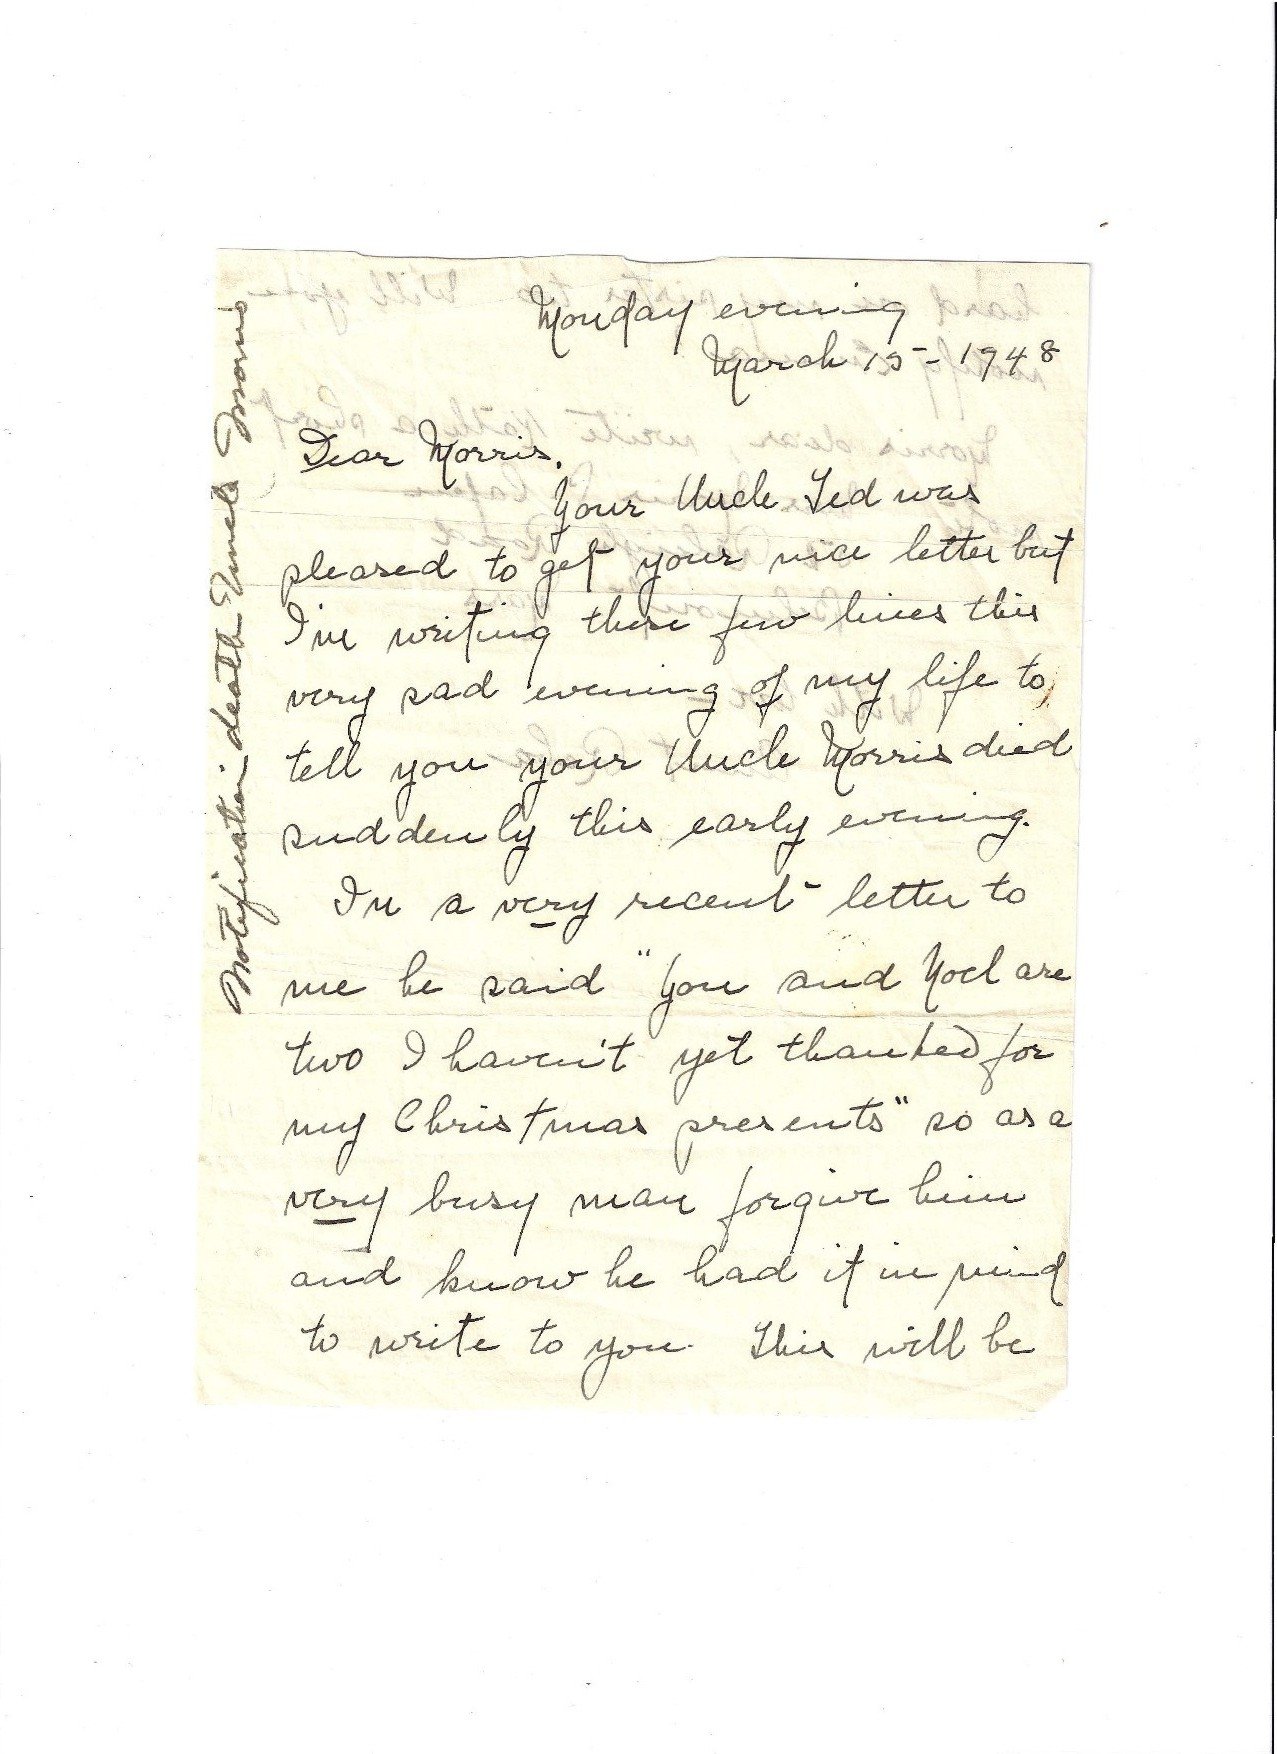 Monday evening
March 15 - 1948
Dear Morris,
Your Uncle Ted was
pleased to get your nice letter but
I'm writing these few lines this
very sad evening of my life to
tell you your Uncle Morris died
suddenly this early evening.
In a very recent letter to
me he said "You and Noel are
two I haven't yet thanked for
my Christmas presents" so as a
very busy man forgive him
and know he had it in mind
to write to you. This will be
Notification death Uncle Morris